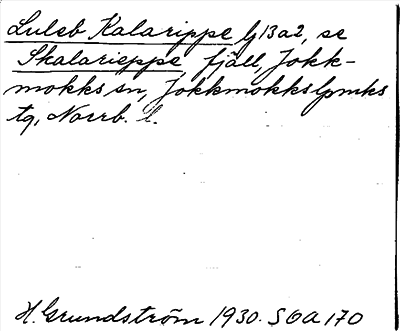 Luleb Kalarippe bj 13 a2, se
Skalarieppe fjäll, Jokk-
mokks sn, Jokkmokks lpmks
tg, Norrb. l.
H. Grundström 1930. SOA 170